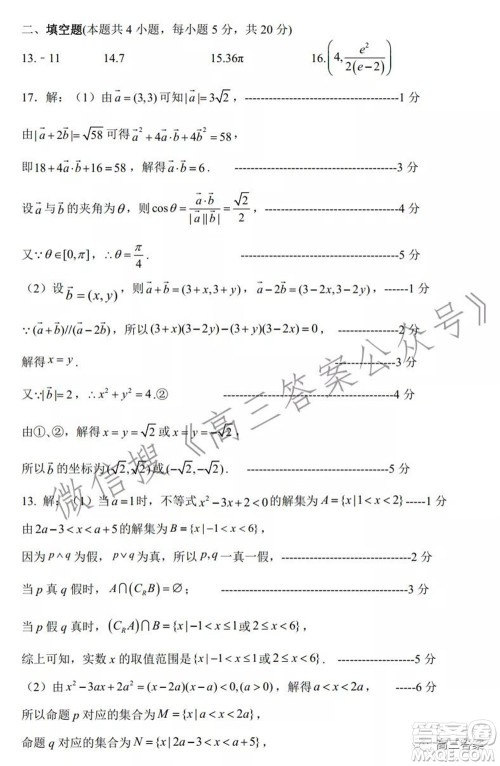 二、填空题(本题共 4 小题，每小题 5 分，共 20 分)
13. - 11 14.7 15.36π 16.(4, e²/(2(e-2)))
17. 解:（1）由a⃗=(3,3)可知|a⃗|=3√2，--------1 分
由|a⃗+2b⃗|=√58可得a⃗²+4a⃗·b⃗+4b⃗²=58，
即18+4a⃗·b⃗+16=58，解得a⃗·b⃗=6. --------3 分
设a⃗与b⃗的夹角为θ，则cosθ=a⃗·b⃗/(|a⃗||b⃗|)=√2/2，--------4 分
又∵θ∈[0,π]，∴θ=π/4. --------5 分
（2）设b⃗=(x,y)，则a⃗+b⃗=(3+x,3+y)，a⃗-2b⃗=(3-2x,3-2y)，------1 分
∵(a⃗+b⃗)//(a⃗-2b⃗)，所以(3+x)(3-2y)-(3+y)(3-2x)=0，
解得x=y. --------3 分
又∵|b⃗|=2，∴x²+y²=4.② --------4 分
由①、②，解得x=y=√2或x=y=-√2，
所以b⃗的坐标为(√2,√2)或(-√2,-√2). --------5 分
13. 解:（1）当a=1时，不等式x²-3x+2<0的解集为A={x|1<x<2}-----1 分
由2a-3<x<a+5的解集为B={x|-1<x<6}，
因为p∧q为假，p∨q为真，所以p,q一真一假，--------2 分
当 p 真 q 假时，A∩(C_R B)=∅； --------3 分
当 p 假 q 真时，(C_R A)∩B={x|-1<x≤1或2≤x<6}，
综上可知，实数 x 的取值范围是{x|-1<x≤1或2≤x<6}. --------5 分
（2）由x²-3ax+2a²=(x-a)(x-2a)<0,(a>0)，解得a<x<2a， -----6 分
所以命题 p 对应的集合为M={x|a<x<2a,(a>0)}，
命题 q 对应的集合为N={x|2a-3<x<a+5}，
微信搜《高三答案公众号》
高三答案